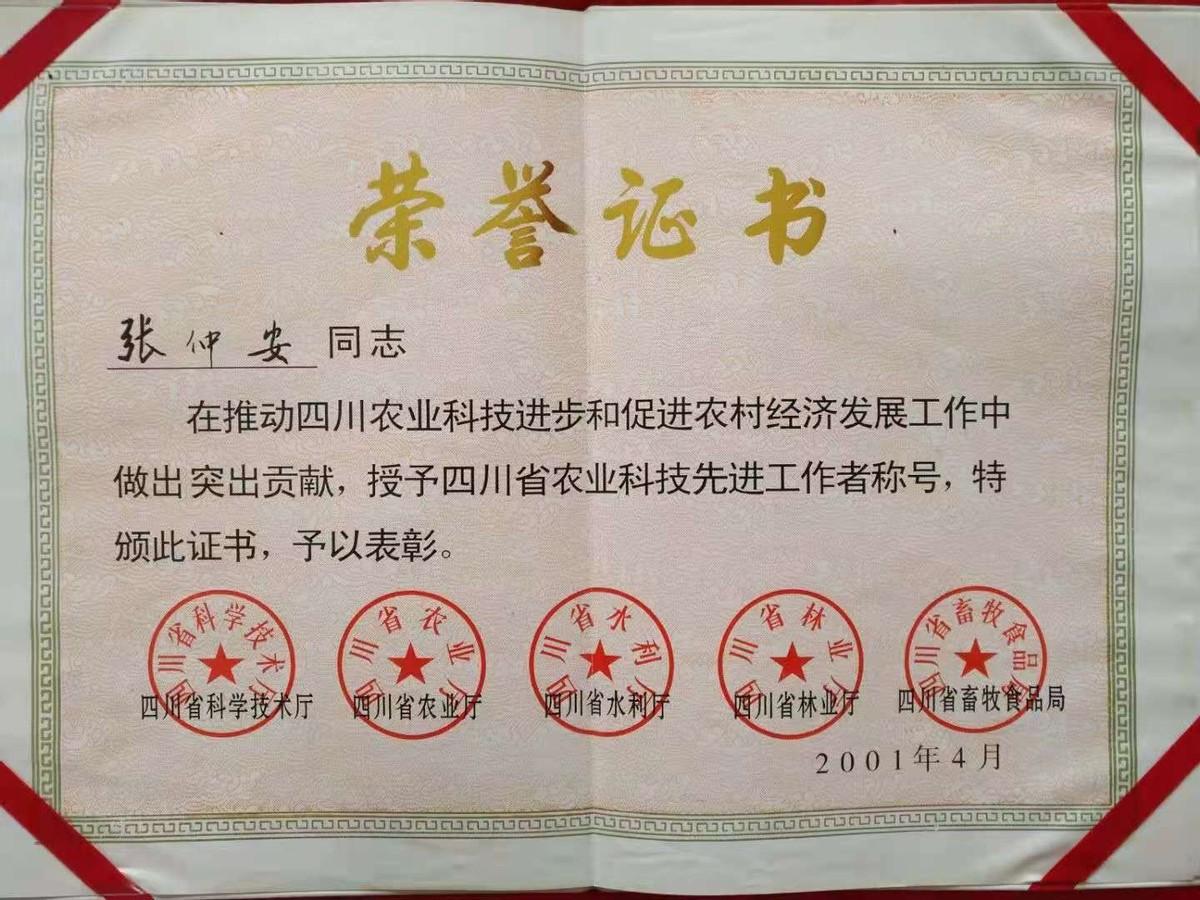 荣誉证书
张仲安 同志
在推动四川农业科技进步和促进农村经济发展工作中
做出突出贡献，授予四川省农业科技先进工作者称号，特
颁此证书，予以表彰。
四川省科学技术厅 四川省农业厅 四川省水利厅 四川省林业厅 四川省畜牧食品局
四川省科学技术厅 四川省农业厅 四川省水利厅 四川省林业厅 四川省畜牧食品局
2001年4月